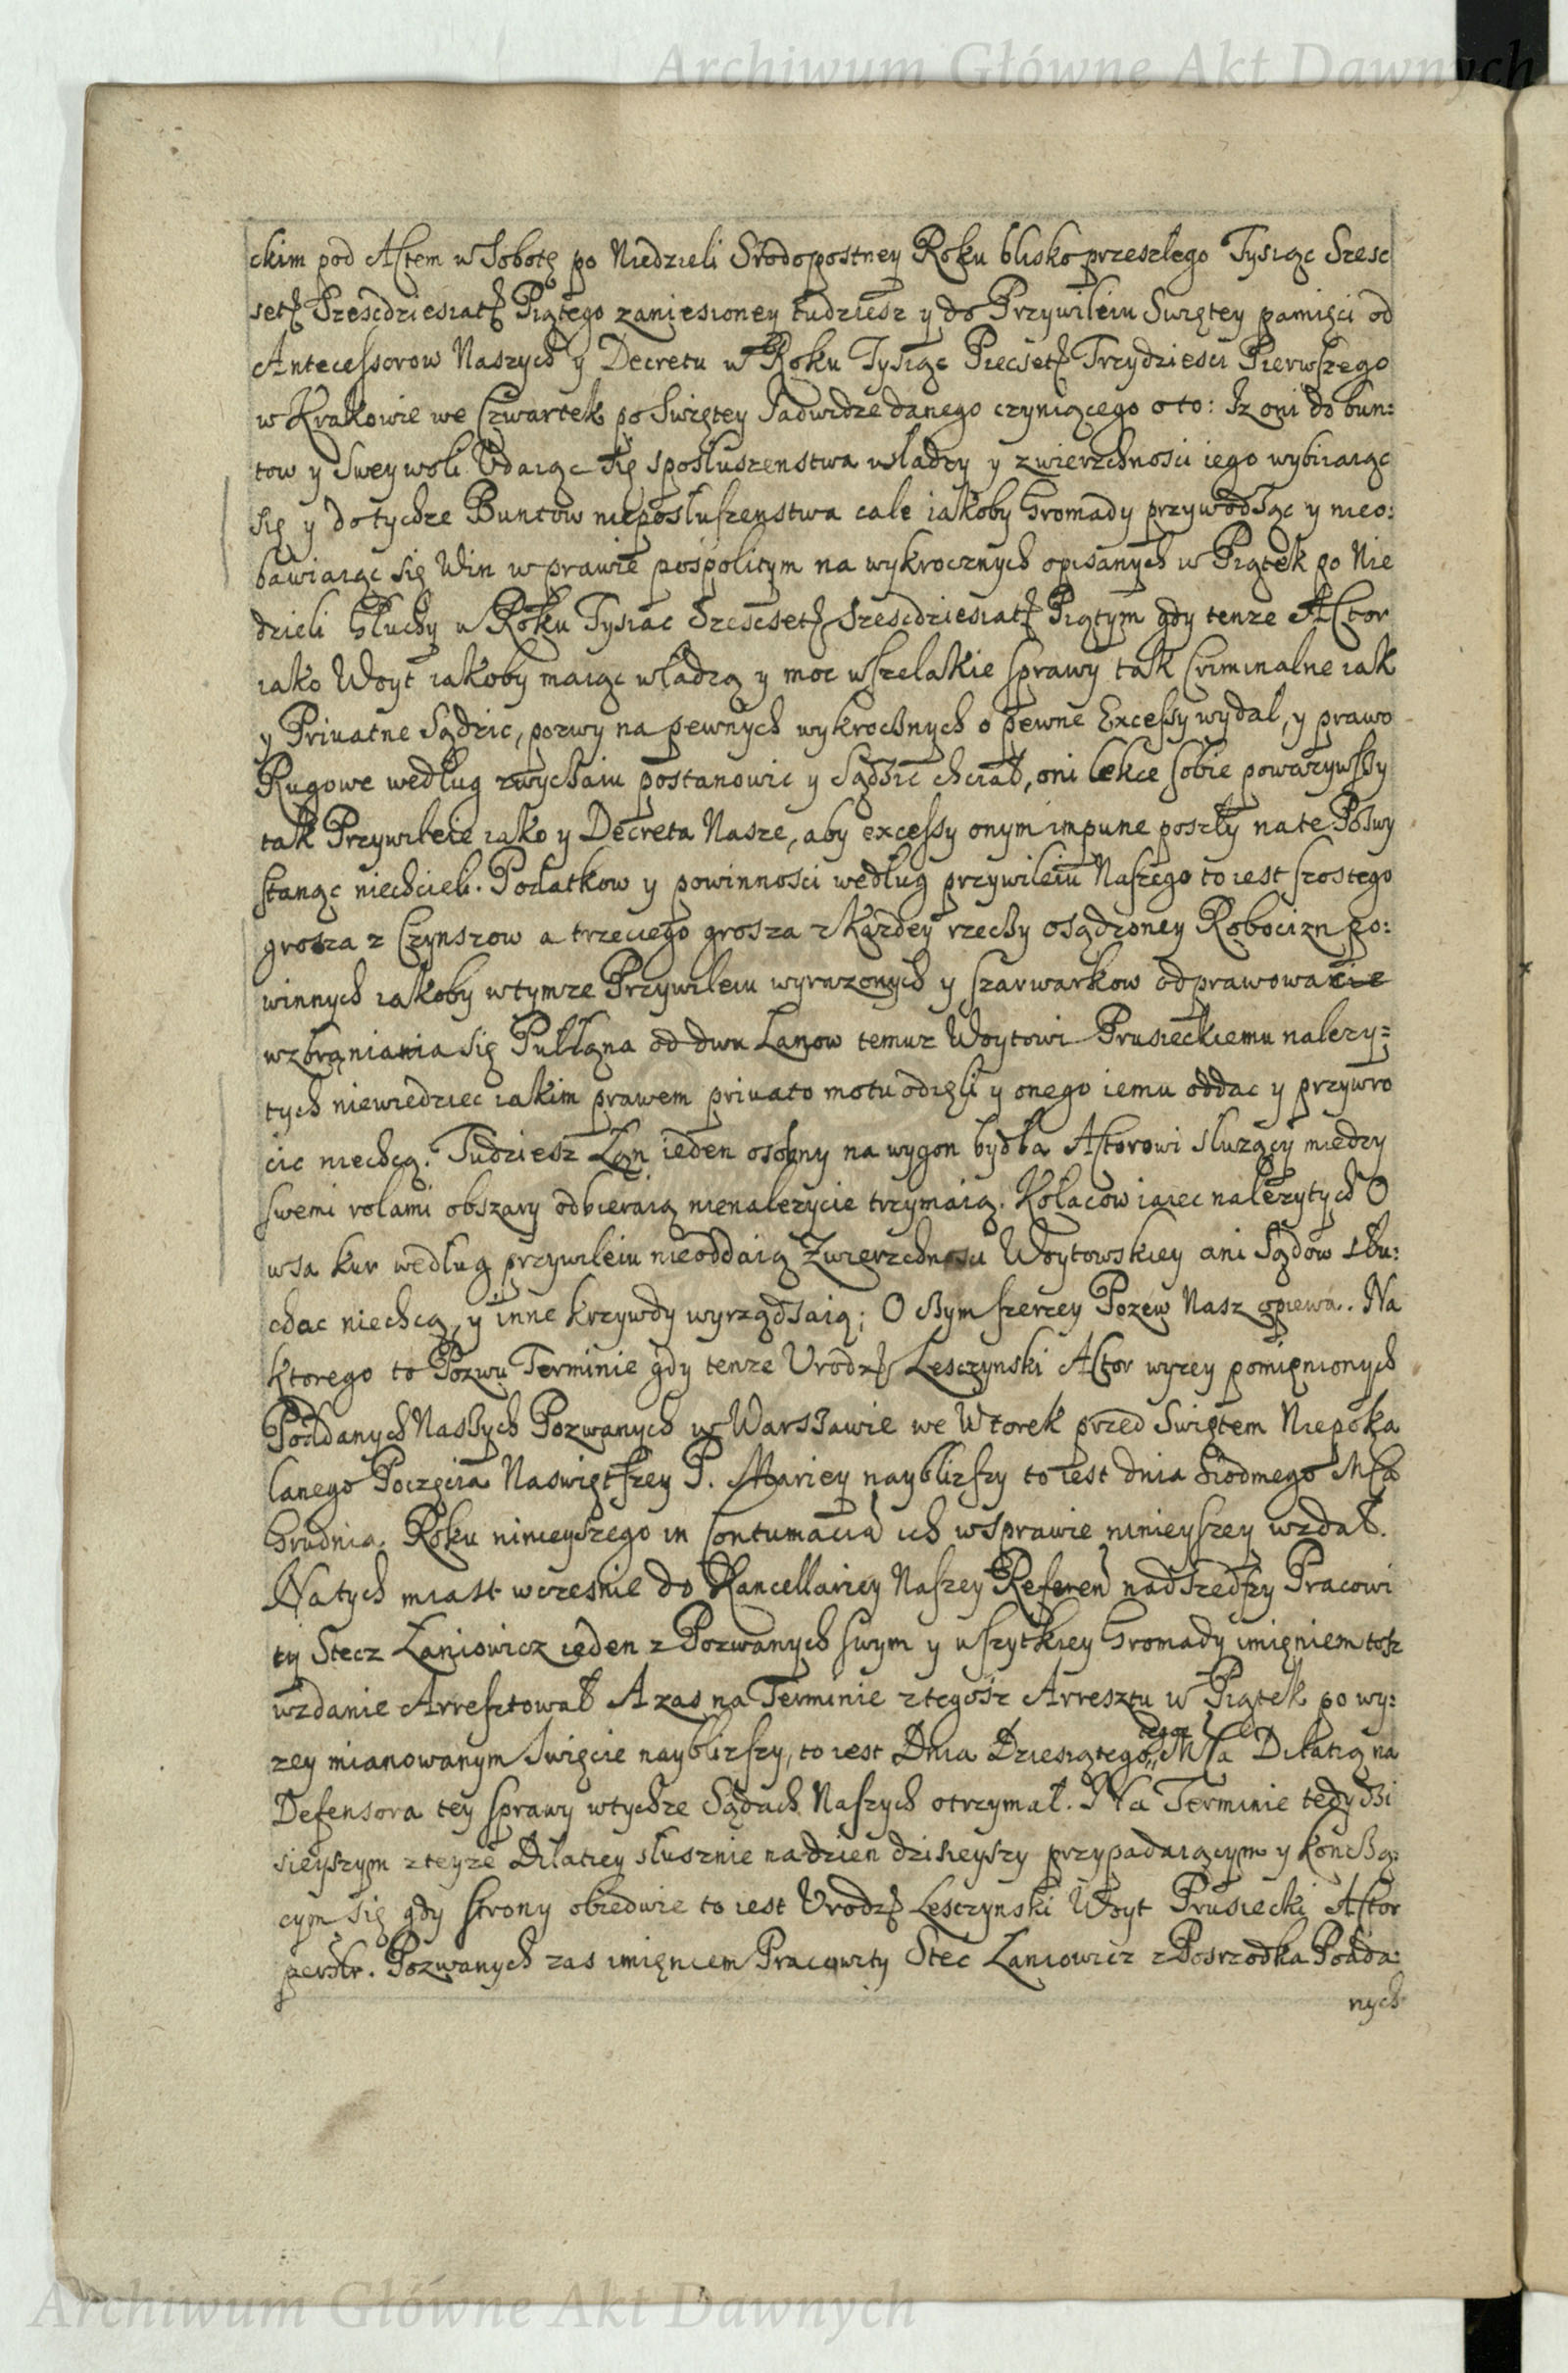 Archiwum Główne Akt Dawnych
ckim pod Actem w Sobotę po Niedzieli Srodopostney Roku blisko przeszłego Tysiąc Szesc
set Szescdziesiat Piątego zaniesioney tudziesz y do Przywileiu Swiętey pamięci od
Antecessorow Naszych y Decretu w Roku Tysiąc Piecset Trzydziesci Pierwszego
w Krakowie we Czwartek po Swiętey Jadwidze danego czyniącego o to: Iz oni do bun:
tow y Swey woli Udaiąc się sposłuszenstwa władzy y zwierzchnosci iego wybiiaiąc
się y do tychze Buntow nieposłuszenstwa całe iakoby Gromady przywodząc y nieo:
bawiaiąc się Win w prawie pospolitym na wykrocznych opisanych w Piątek po Nie
dzieli Głuchy w Roku Tysiac Szescset Szescdziesiat Piątym gdy tenze Actor
iako Woyt iakoby maiąc władzą y moc wszelakie sprawy tak Criminalne iak
y Priuatne Sądzic, pozwy na pewnych wykrocznych o pewne Excessy wydał, y prawo
Rugowe według zwyczaiu postanowic y Sądzic chciał, oni lekce sobie powazywszy
tak Przywileie iako y Decreta Nasze, aby excessy onym impune poszły na te Pozwy
stanąc niechcieli. Podatkow y powinnosci według przywileiu Naszego to iest szostego
grosza z Czynszow a trzeciego grosza z Kazdey rzeczy osądzoney Robocizn po:
winnych iakoby wtymze Przywileiu wyrazonych y szarwarkow odprawowa
wzbraniania się Pułłana od dwu Łanow temuz Woytowi Prusieckiemu nalezy:
tych niewiedziec iakim prawem priuato motu odięli y onego iemu oddac y przywro
cic niechcą. Tudziesz Łan ieden osobny na wygon bydła Actorowi sluzący miedzy
swemi rolami obszary odbieraią nienalezycie trzymaią. Kołacow iaiec nalezytych O
wsa kur według przywileiu nieoddaią Zwierzchnosci Woytowskiey ani Sądow słu:
chac niechcą, y inne krzywdy wyrządzaią; O czym szerzey Pozew Nasz opiewa. Na
ktorego to Pozwu Terminie gdy tenze Urodz Lesczynski Actor wyzey pomienionych
Poddanych Naszych Pozwanych w Warszawie we Wtorek przed Swiętem Niepoka
lanego Poczęcia Naswiętszey P. Mariey nayblizszy to iest dnia Siodmego Msca
Grudnia Roku ninieyszego in Contumacia ich wsprawie ninieyszey wzdał.
Na tych miast wczesnie do Kancellariey Naszey Referen nadszedszy Pracowi
ty Stecz Laniowicz ieden z Pozwanych swym y wszytkiey Gromady imieniem tosz
wzdanie Arresztował A zas na Terminie ztegosz Arresztu w Piątek po wy:
zey mianowanym Swięcie nayblizszy, to iest Dnia Dziesiątego tegoz Msca Dilatią na
Defensora tey sprawy wtychze Sądach Naszych otrzymał. Na Terminie tedy dzi
sieyszym zteyze Dilatiey słusznie na dzien dzisieyszy przypadaiącym y konczą:
cym się gdy strony obiedwie to iest Urodz Lesczynski Woyt Prusiecki Actor
Pozwanych zas imieniem Pracowity Stec Laniowicz z Posrzodka Podda:
nych
Archiwum Główne Akt Dawnych